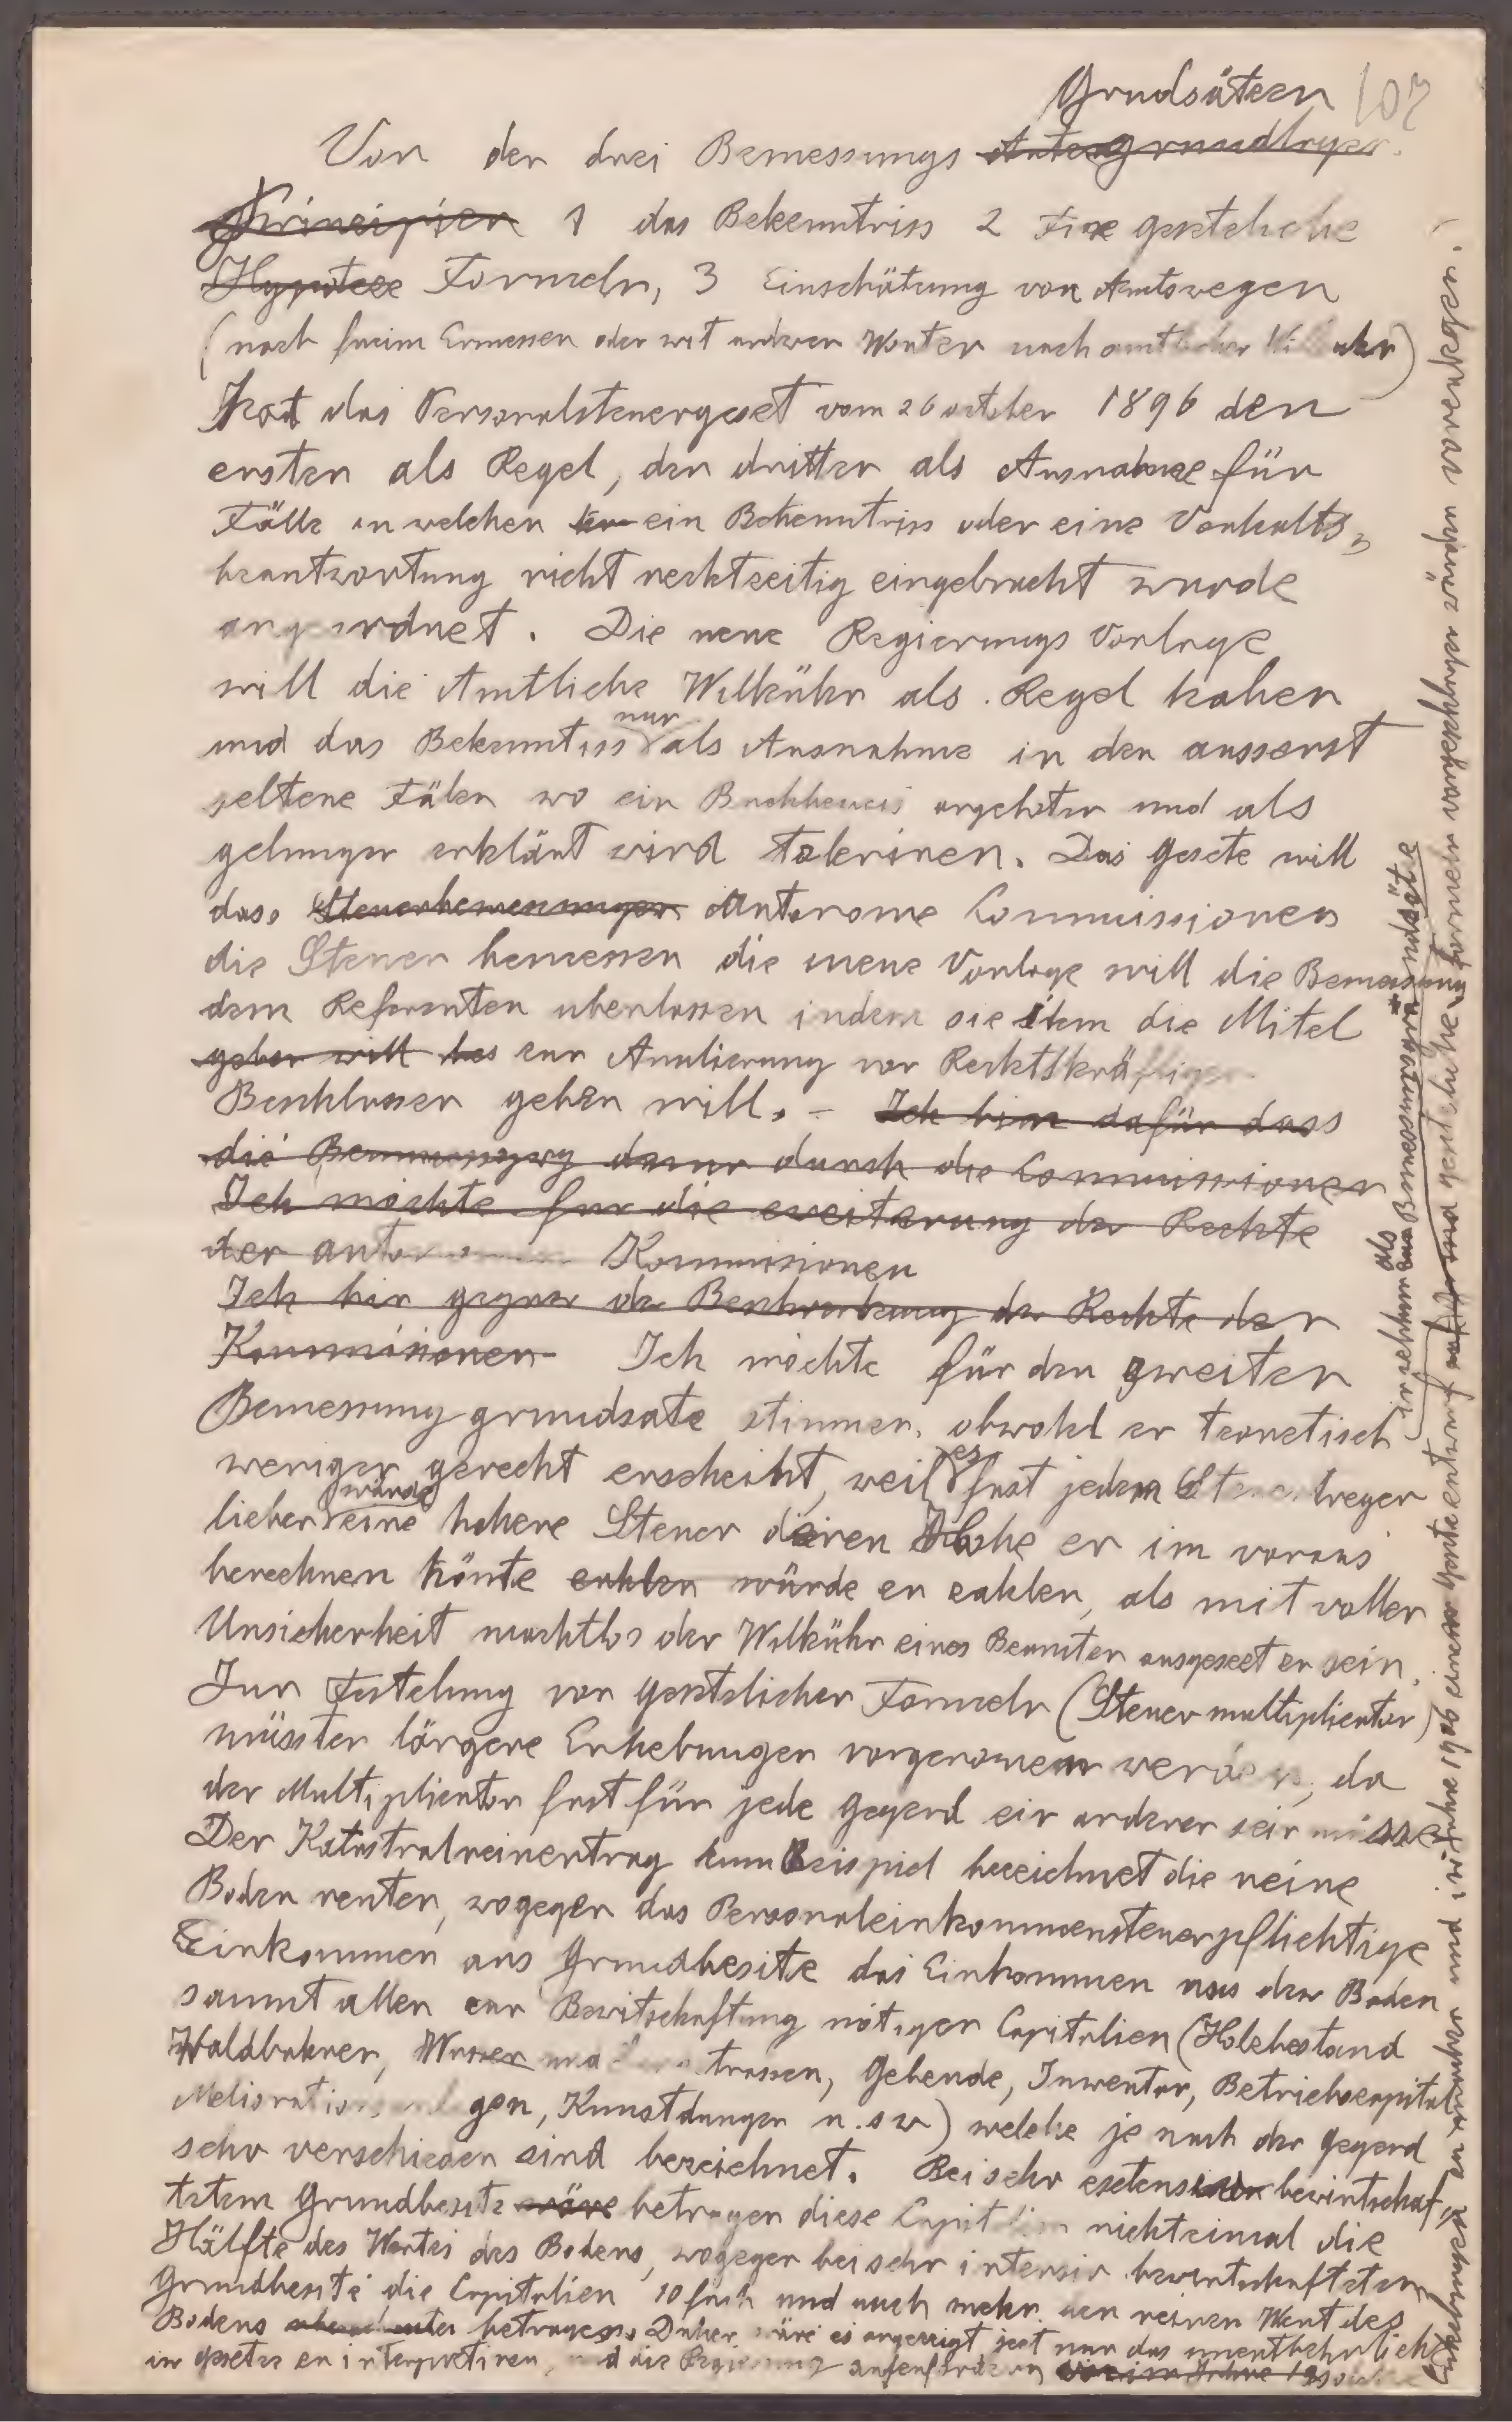 Grudsätzen 107
Von der drei Bemessungs
Principien 1 das Bekenntniss 2 Fixe gesetzliche
Hypoteze Formeln, 3 Einschätzung von Amtswegen
(nach freim Ermessen oder mit anderen Worten nach amtlicher Willkuhr)
hat das Personalsteuergeset vom 26 october 1896 den
ersten als Regel, den dritten als Ausnahme für
Fälle in welchen ein Bekenntniss oder eine Vorhalts-
beantwortung nicht rechtzeitig eingebracht wurde
angeordnet. Die neue Regierungs Vorlage
will die Amtliche Willkühr als Regel haben
und das Bekenntniss nur als Ausnahme in den ausserst
seltene Fälen wo ein angeboten und als
gelungen erklärt wird tolerieren. Das Gesetz will
dass Steuerbemessungen Autonome Commissionen
die Steuer bemessen die neue Vorlage will die Bemessung
dem Referenten uberlassen indem sie ihm die Mitel
geben will zur Anulierung von Rechtskräftigen
Beschlussen geben will. – Ich bin dafür dass
die durch die Commissionen
Ich möchte fur die erweiterung der Rechte
der autonomen Kommisionen
Ich bin gegen die Beschrenkung der Rechte der
Kommisionen Ich möchte für den zweiten
Bemessung grundsatz stimmen, obwohl er teoretisch
weniger gerecht erscheint, weil es fast jedem Steuertreger
lieber wäre eine hohere Steuer deren Hohe er im voraus
berechnen könte zahlen würde er zahlen, als mit voller
Unsicherheit machtlos der Willkühr eines Beamten ausgesezt zu sein.
Zur Festelung von gesetzlichen Formeln (Steuermultiplicator)
müssten längere Erhebungen vorgenomen werden, da
der Multiplicator fast für jede Gegend ein anderer sein müsse
Der Katastralreinertrag zum Beispiel bezeichnet die reine
Boden renten, wogegen das Personaleinkommensteuerpflichtige
Einkommen aus Grundbesitze das Einkommen aus den Boden
sammt allen zur Bewirtschaftung nötigen Capitalien (Holzbestand
Waldbahnen, Wasser trassen, Gebeude, Inwentar, Betriebscapital
Meliorationsanlagen, Kunstdunger u.s w) welche je nach der Gegend
sehr verschieden sind bezeichnet. Bei sehr extensiv bewirtschaf-
tetem Grundbesitz wäre betragen diese Capitalien nichteinmal die
Hälfte des Wertes des Bodens, wogegen bei sehr intensiv bewirtschafteten
Grundbesitz die Capitalien 10 fach und auch mehr den reinen Wert des
Bodens betragen. Daher wäre es angezeigt jezt nur das unentbehrlich
in gesetze zu interpretiren, und die Regierung aufzufordern
Erhebungen zu machen und im Jahre 1906 einen Gesetzentwurf und gesetzliche Formeln vorzulegen.
in welchem als Bemessungsgrundsätze